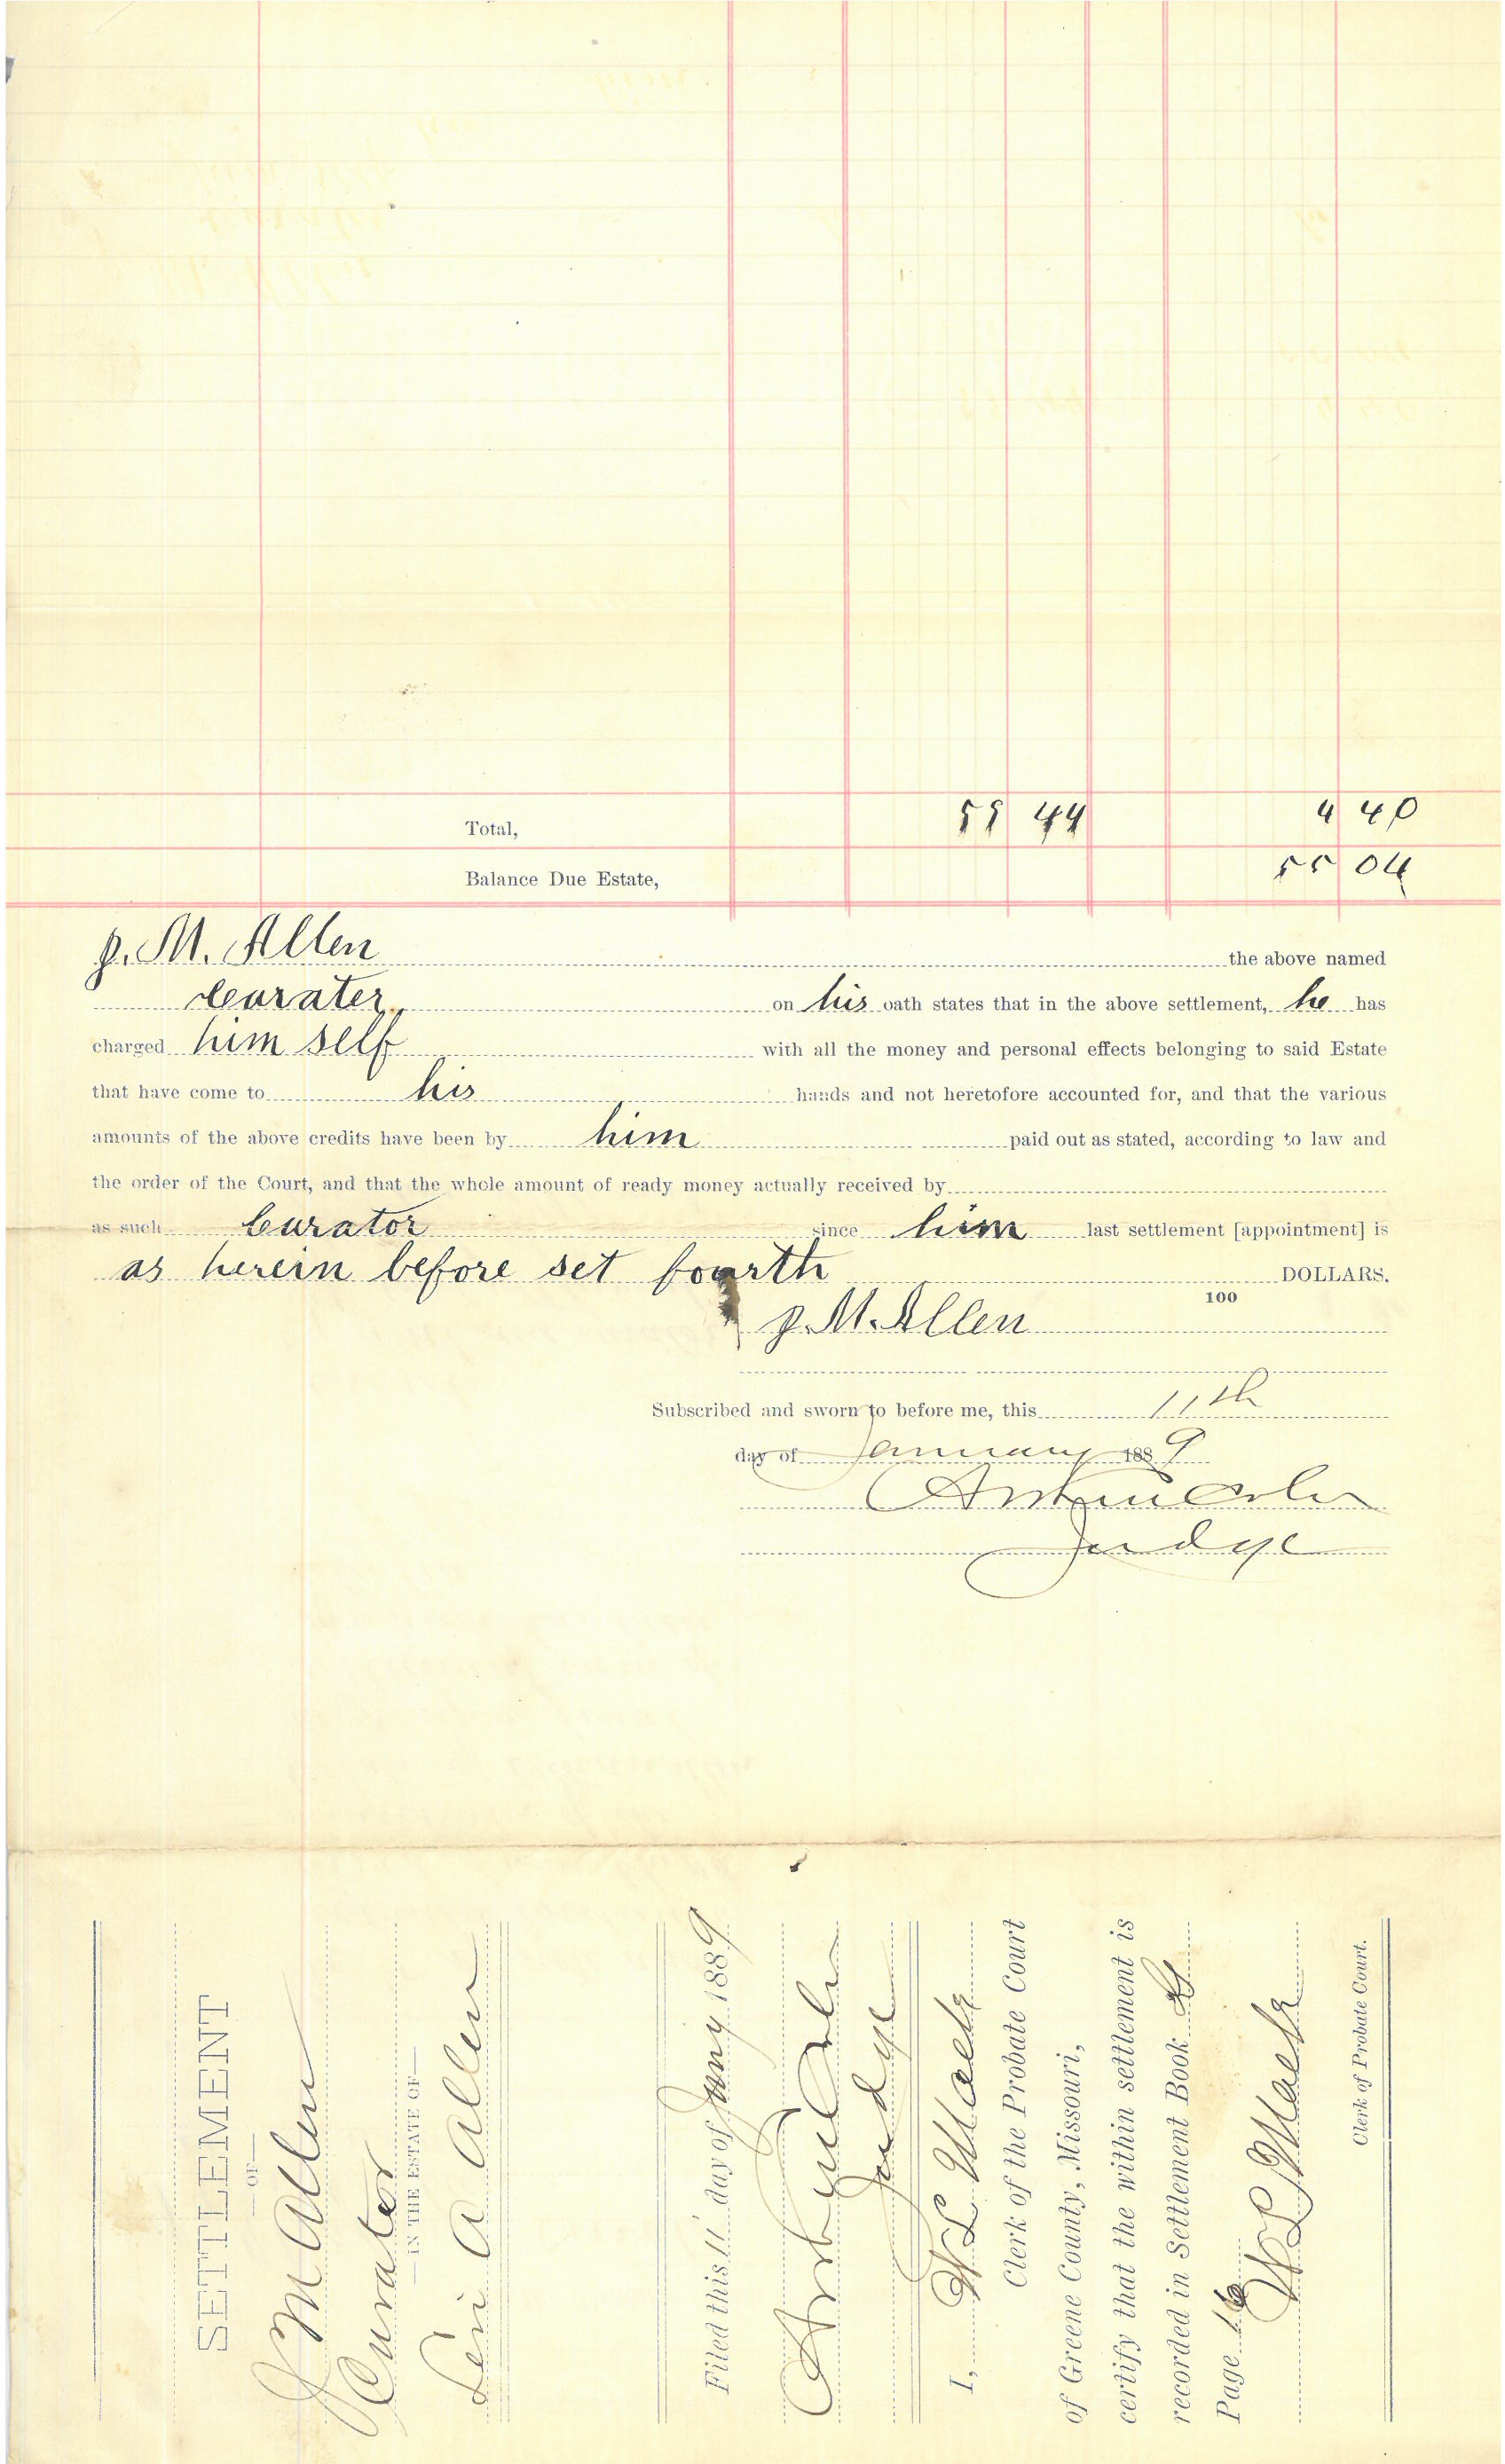 Total, 59 44 4 40
Balance Due Estate, 55 04
J. M. Allen the above named
Curater on his oath states that in the above settlement, he has
charged him self with all the money and personal effects belonging to said Estate
that have come to his hands and not heretofore accounted for, and that the various
amounts of the above credits have been by him paid out as stated, according to law and
the order of the Court, and that the whole amount of ready money actually received by
as such Curator since him last settlement [appointment] is
as herein before set fourth DOLLARS.
100
J. M. Allen
Subscribed and sworn to before me, this 11th
day of January 1889
Judge
SETTLEMENT
—OF—
J M Allen
Curator
—IN THE ESTATE OF—
A Allen
Filed this 11 day of Jany 1889
Judge
I, W L
Clerk of the Probate Court
of Greene County, Missouri,
certify that the within settlement is
recorded in Settlement Book
Page
W L
Clerk of Probate Court.